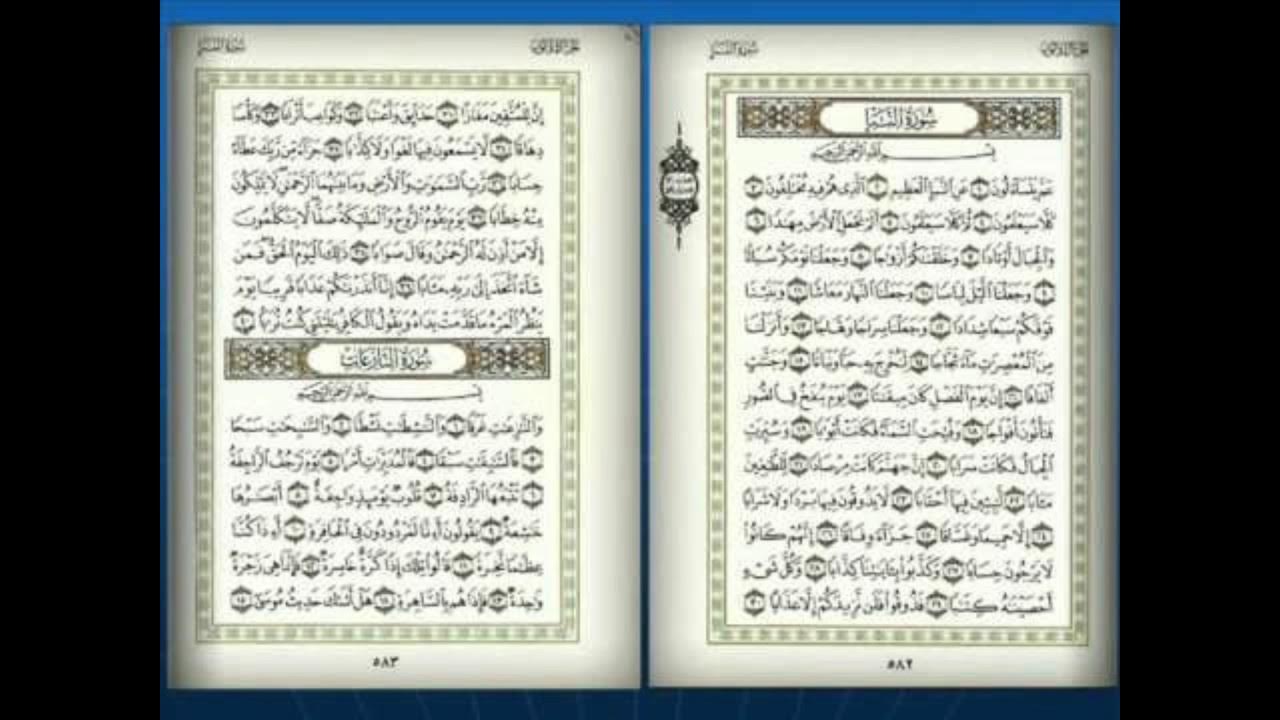 سُورَةُ النَّبَإِ
الجُزْءُ الثَّلَاثُونَ
سُورَةُ النَّبَإِ
بِسْمِ اللَّهِ الرَّحْمَٰنِ الرَّحِيمِ
عَمَّ يَتَسَآءَلُونَ ١ عَنِ النَّبَإِ الْعَظِيمِ ٢ الَّذِي هُمْ فِيهِ مُخْتَلِفُونَ ٣
كَلَّا سَيَعْلَمُونَ ٤ ثُمَّ كَلَّا سَيَعْلَمُونَ ٥ أَلَمْ نَجْعَلِ الْأَرْضَ مِهَٰدًا ٦
وَالْجِبَالَ أَوْتَادًا ٧ وَخَلَقْنَٰكُمْ أَزْوَٰجًا ٨ وَجَعَلْنَا نَوْمَكُمْ سُبَاتًا
٩ وَجَعَلْنَا الَّيْلَ لِبَاسًا ١٠ وَجَعَلْنَا النَّهَارَ مَعَاشًا ١١ وَبَنَيْنَا
فَوْقَكُمْ سَبْعًا شِدَادًا ١٢ وَجَعَلْنَا سِرَاجًا وَهَّاجًا ١٣ وَأَنزَلْنَا
مِنَ الْمُعْصِرَٰتِ مَآءً ثَجَّاجًا ١٤ لِّنُخْرِجَ بِهِ حَبًّا وَنَبَاتًا ١٥ وَجَنَّٰتٍ
أَلْفَافًا ١٦ إِنَّ يَوْمَ الْفَصْلِ كَانَ مِيقَٰتًا ١٧ يَوْمَ يُنفَخُ فِي الصُّورِ
فَتَأْتُونَ أَفْوَاجًا ١٨ وَفُتِحَتِ السَّمَآءُ فَكَانَتْ أَبْوَٰبًا ١٩ وَسُيِّرَتِ
الْجِبَالُ فَكَانَتْ سَرَابًا ٢٠ إِنَّ جَهَنَّمَ كَانَتْ مِرْصَادًا ٢١ لِّلطَّٰغِينَ
مَـَٔابًا ٢٢ لَّٰبِثِينَ فِيهَآ أَحْقَابًا ٢٣ لَّا يَذُوقُونَ فِيهَا بَرْدًا وَلَا شَرَابًا
٢٤ إِلَّا حَمِيمًا وَغَسَّاقًا ٢٥ جَزَآءً وِفَاقًا ٢٦ إِنَّهُمْ كَانُوا
لَا يَرْجُونَ حِسَابًا ٢٧ وَكَذَّبُوا بِـَٔايَٰتِنَا كِذَّابًا ٢٨ وَكُلَّ شَيْءٍ
أَحْصَيْنَٰهُ كِتَٰبًا ٢٩ فَذُوقُوا فَلَن نَّزِيدَكُمْ إِلَّا عَذَابًا ٣٠
٥٨٢
سُورَةُ النَّبَإِ
الجُزْءُ الثَّلَاثُونَ
إِنَّ لِلْمُتَّقِينَ مَفَازًا ٣١ حَدَآئِقَ وَأَعْنَٰبًا ٣٢ وَكَوَاعِبَ أَتْرَابًا ٣٣ وَكَأْسًا
دِهَاقًا ٣٤ لَّا يَسْمَعُونَ فِيهَا لَغْوًا وَلَا كِذَّٰبًا ٣٥ جَزَآءً مِّن رَّبِّكَ عَطَآءً
حِسَابًا ٣٦ رَّبِّ السَّمَٰوَٰتِ وَالْأَرْضِ وَمَا بَيْنَهُمَا الرَّحْمَٰنِ لَا يَمْلِكُونَ
مِنْهُ خِطَابًا ٣٧ يَوْمَ يَقُومُ الرُّوحُ وَالْمَلَٰٓئِكَةُ صَفًّا لَّا يَتَكَلَّمُونَ
إِلَّا مَنْ أَذِنَ لَهُ الرَّحْمَٰنُ وَقَالَ صَوَابًا ٣٨ ذَٰلِكَ الْيَوْمُ الْحَقُّ فَمَن
شَآءَ اتَّخَذَ إِلَىٰ رَبِّهِ مَـَٔابًا ٣٩ إِنَّآ أَنذَرْنَٰكُمْ عَذَابًا قَرِيبًا يَوْمَ
يَنظُرُ الْمَرْءُ مَا قَدَّمَتْ يَدَاهُ وَيَقُولُ الْكَافِرُ يَٰلَيْتَنِي كُنتُ تُرَٰبًا ٤٠
سُورَةُ النَّازِعَاتِ
بِسْمِ اللَّهِ الرَّحْمَٰنِ الرَّحِيمِ
وَالنَّٰزِعَٰتِ غَرْقًا ١ وَالنَّٰشِطَٰتِ نَشْطًا ٢ وَالسَّٰبِحَٰتِ سَبْحًا
٣ فَالسَّٰبِقَٰتِ سَبْقًا ٤ فَالْمُدَبِّرَٰتِ أَمْرًا ٥ يَوْمَ تَرْجُفُ الرَّاجِفَةُ
٦ تَتْبَعُهَا الرَّادِفَةُ ٧ قُلُوبٌ يَوْمَئِذٍ وَاجِفَةٌ ٨ أَبْصَٰرُهَا
خَٰشِعَةٌ ٩ يَقُولُونَ أَءِنَّا لَمَرْدُودُونَ فِي الْحَافِرَةِ ١٠ أَءِذَا كُنَّا
عِظَٰمًا نَّخِرَةً ١١ قَالُوا تِلْكَ إِذًا كَرَّةٌ خَاسِرَةٌ ١٢ فَإِنَّمَا هِيَ زَجْرَةٌ
وَٰحِدَةٌ ١٣ فَإِذَا هُم بِالسَّاهِرَةِ ١٤ هَلْ أَتَىٰكَ حَدِيثُ مُوسَىٰ ١٥
٥٨٣